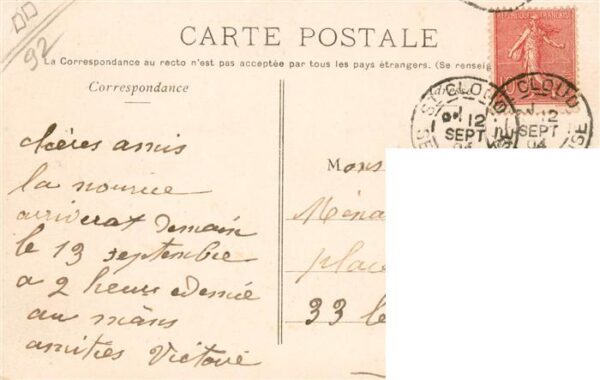 92
CARTE POSTALE
La Correspondance au recto n'est pas acceptée par tous les pays étrangers. (Se renseig
Correspondance
chères amis
la nourrice
arriverat demain
le 13 septembre
a 2 heure demie
au mans
amitiés Victoire
REPUBLIQUE FRANÇAISE
ST CLOUD
12
SEPT
04
CLOUD
12
SEPT
04
Mons
Ména
place
33 le